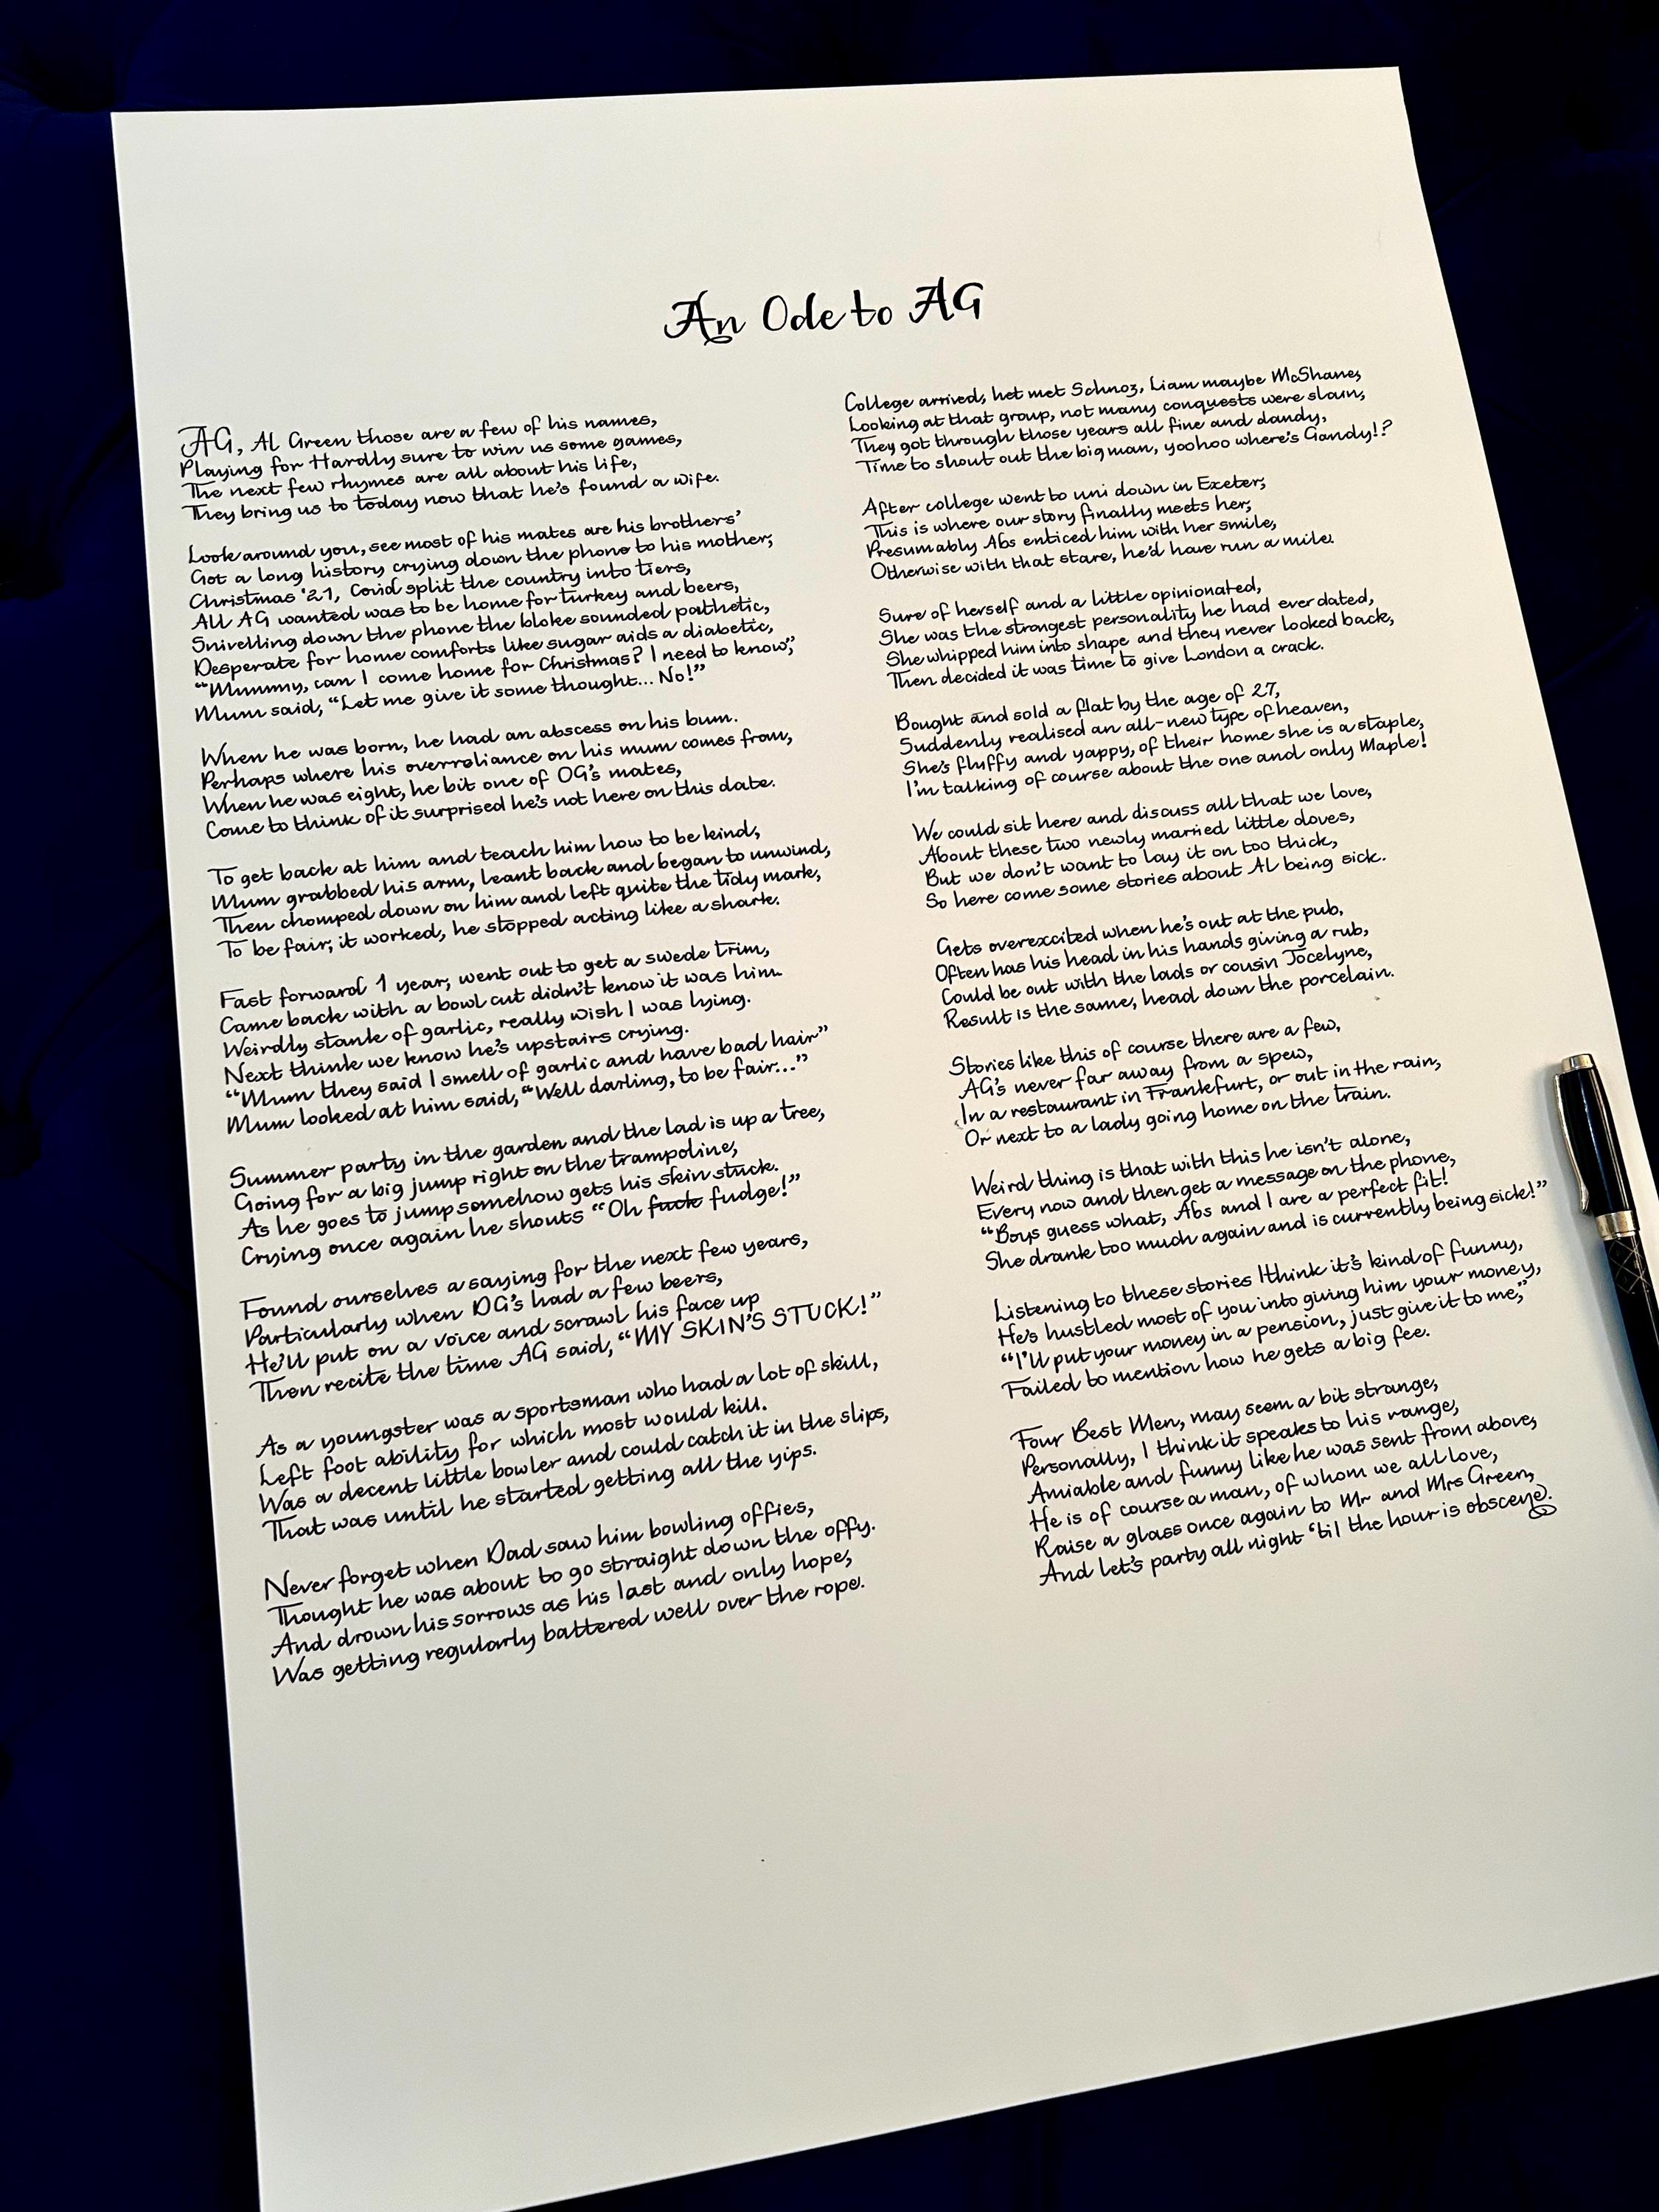 An Ode to AG
AG, Al Green those are a few of his names,
Playing for Hardly sure to win us some games,
The next few rhymes are all about his life,
They bring us to today now that he's found a wife.
Look around you, see most of his mates are his brothers'
Got a long history crying down the phone to his mother,
Christmas '21, Covid split the country into tiers,
All AG wanted was to be home for turkey and beers,
Snivelling down the phone the bloke sounded pathetic,
Desperate for home comforts like sugar aids a diabetic,
“Mummy, can I come home for Christmas? I need to know,”
Mum said, “Let me give it some thought... No!”
When he was born, he had an abscess on his bum.
Perhaps where his overreliance on his mum comes from,
When he was eight, he bit one of OG's mates,
Come to think of it surprised he's not here on this date.
To get back at him and teach him how to be kind,
Mum grabbed his arm, leant back and began to unwind,
Then chomped down on him and left quite the tidy mark,
To be fair, it worked, he stopped acting like a shark.
Fast forward 1 year, went out to get a swede trim,
Came back with a bowl cut didn't know it was him.
Weirdly stank of garlic, really wish I was lying.
Next think we know he's upstairs crying.
“Mum they said I smell of garlic and have bad hair”
Mum looked at him said, “Well darling, to be fair...”
Summer party in the garden and the lad is up a tree,
Going for a big jump right on the trampoline,
As he goes to jump somehow gets his skin stuck.
Crying once again he shouts “Oh fuck fudge!”
Found ourselves a saying for the next few years,
Particularly when DG's had a few beers,
He'll put on a voice and scrawl his face up
Then recite the time AG said, “MY SKIN'S STUCK!”
As a youngster was a sportsman who had a lot of skill,
Left foot ability for which most would kill.
Was a decent little bowler and could catch it in the slips,
That was until he started getting all the yips.
Never forget when Dad saw him bowling offies,
Thought he was about to go straight down the offy.
And drown his sorrows as his last and only hope,
Was getting regularly battered well over the rope.
College arrived, het met Schnoz, Liam maybe McShane,
Looking at that group, not many conquests were slain,
They got through those years all fine and dandy,
Time to shout out the big man, yoohoo where's Gandy!?
After college went to uni down in Exeter,
This is where our story finally meets her,
Presumably Abs enticed him with her smile,
Otherwise with that stare, he'd have run a mile.
Sure of herself and a little opinionated,
She was the strongest personality he had ever dated,
She whipped him into shape and they never looked back,
Then decided it was time to give London a crack.
Bought and sold a flat by the age of 27,
Suddenly realised an all-new type of heaven,
She's fluffy and yappy, of their home she is a staple,
I'm talking of course about the one and only Maple!
We could sit here and discuss all that we love,
About these two newly married little doves,
But we don't want to lay it on too thick,
So here come some stories about Al being sick.
Gets overexcited when he's out at the pub,
Often has his head in his hands giving a rub,
Could be out with the lads or cousin Jocelyne,
Result is the same, head down the porcelain.
Stories like this of course there are a few,
AG's never far away from a spew,
In a restaurant in Frankfurt, or out in the rain,
Or next to a lady going home on the train.
Weird thing is that with this he isn't alone,
Every now and then get a message on the phone,
“Boys guess what, Abs and I are a perfect fit!
She drank too much again and is currently being sick!”
Listening to these stories I think it's kind of funny,
He's hustled most of you into giving him your money,
“I'll put your money in a pension, just give it to me,”
Failed to mention how he gets a big fee.
Four Best Men, may seem a bit strange,
Personally, I think it speaks to his range,
Amiable and funny like he was sent from above,
He is of course a man, of whom we all love,
Raise a glass once again to Mr and Mrs Green,
And let's party all night 'til the hour is obscene.